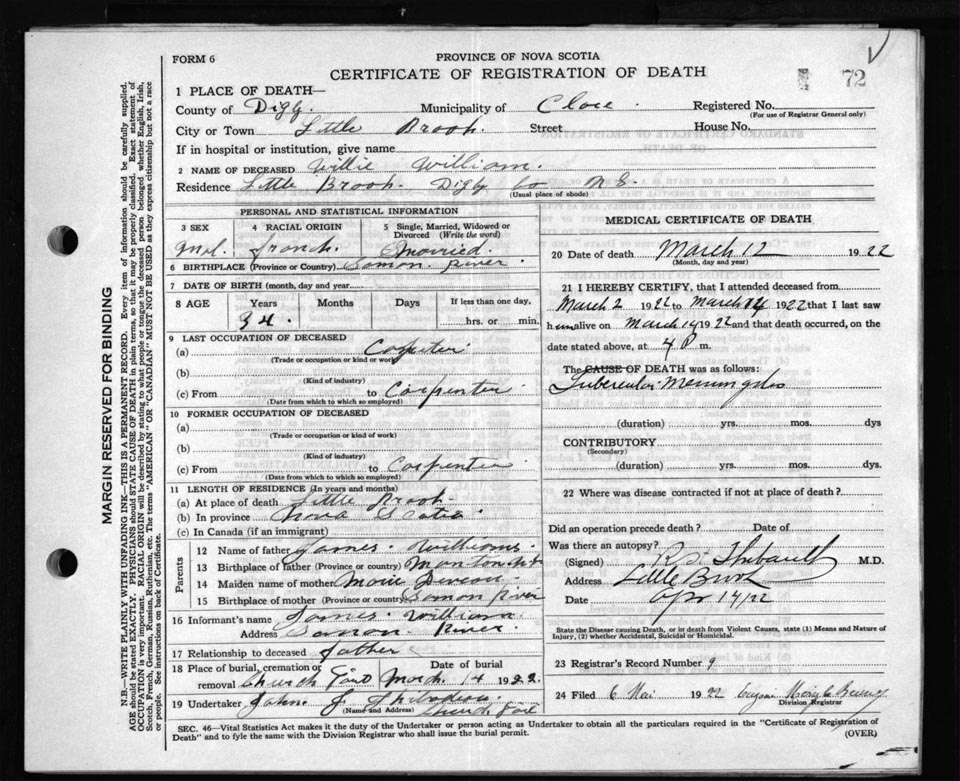 FORM 6
PROVINCE OF NOVA SCOTIA
CERTIFICATE OF REGISTRATION OF DEATH
72
1 PLACE OF DEATH—
County of Digby. Municipality of Clare. Registered No.
(For use of Registrar General only)
City or Town Little Brook. Street House No.
If in hospital or institution, give name
2 NAME OF DECEASED Willie William.
Residence Little Brook. Digby Co N.S.
(Usual place of abode)
PERSONAL AND STATISTICAL INFORMATION
3 SEX 4 RACIAL ORIGIN 5 Single, Married, Widowed or Divorced (Write the word)
Mal. french. Married
6 BIRTHPLACE (Province or Country) Samon River.
7 DATE OF BIRTH (month, day and year)
8 AGE Years Months Days If less than one day,
34. hrs. or min.
9 LAST OCCUPATION OF DECEASED
(a)
(Trade or occupation or kind of work)
(b)
(Kind of industry)
(c) From to Carpenter
(Date from which to which so employed)
10 FORMER OCCUPATION OF DECEASED
(a)
(Trade or occupation or kind of work)
(b)
(Kind of industry)
(c) From to Carpenter
(Date from which to which so employed)
11 LENGTH OF RESIDENCE (In years and months)
(a) At place of death Little Brook
(b) In province Nova Scotia
(c) In Canada (if an immigrant)
Parents
12 Name of father James Williams.
13 Birthplace of father (Province or country)
14 Maiden name of mother Marie
15 Birthplace of mother (Province or country) Samon River
16 Informant's name James William
Address Samon River.
17 Relationship to deceased father
18 Place of burial, cremation or removal Church Point Date of burial March 14 1922.
19 Undertaker John J. Thibodeau
(Name and Address) Church Point
MEDICAL CERTIFICATE OF DEATH
20 Date of death March 12 1922
(Month, day and year)
21 I HEREBY CERTIFY, that I attended deceased from
March 2 1922 to March 14 1922 that I last saw
h im alive on March 14 1922 and that death occurred, on the
date stated above, at 4 P m.
The CAUSE OF DEATH was as follows:
Tubercular Meningitis
(duration) yrs. mos. dys
CONTRIBUTORY
(Secondary)
(duration) yrs. mos. dys.
22 Where was disease contracted if not at place of death?
Did an operation precede death? Date of
Was there an autopsy?
(Signed) Thibault M.D.
Address Little Brook
Date Apr 14/22
State the Disease causing Death, or in death from Violent Causes, state (1) Means and Nature of
Injury, (2) whether Accidental, Suicidal or Homicidal.
23 Registrar's Record Number 9
24 Filed 6 Mai 1922
Division Registrar
SEC. 46—Vital Statistics Act makes it the duty of the Undertaker or person acting as Undertaker to obtain all the particulars required in the "Certificate of Registration of
Death" and to fyle the same with the Division Registrar who shall issue the burial permit.
(OVER)
MARGIN RESERVED FOR BINDING
N.B.—WRITE PLAINLY WITH UNFADING INK—THIS IS A PERMANENT RECORD. Every item of information should be carefully supplied.
AGE should be stated EXACTLY. PHYSICIANS should STATE CAUSE OF DEATH in plain terms, so that it may be properly classified. Exact statement of
OCCUPATION is very important. RACIAL ORIGIN will be described by stating to what people or tongue the deceased person belonged whether English, Irish,
Scotch, French, German, Russian, Ruthenian, etc. The terms "AMERICAN" OR "CANADIAN" MUST NOT BE USED as they express citizenship but not a race
or people. See instructions on back of Certificate.